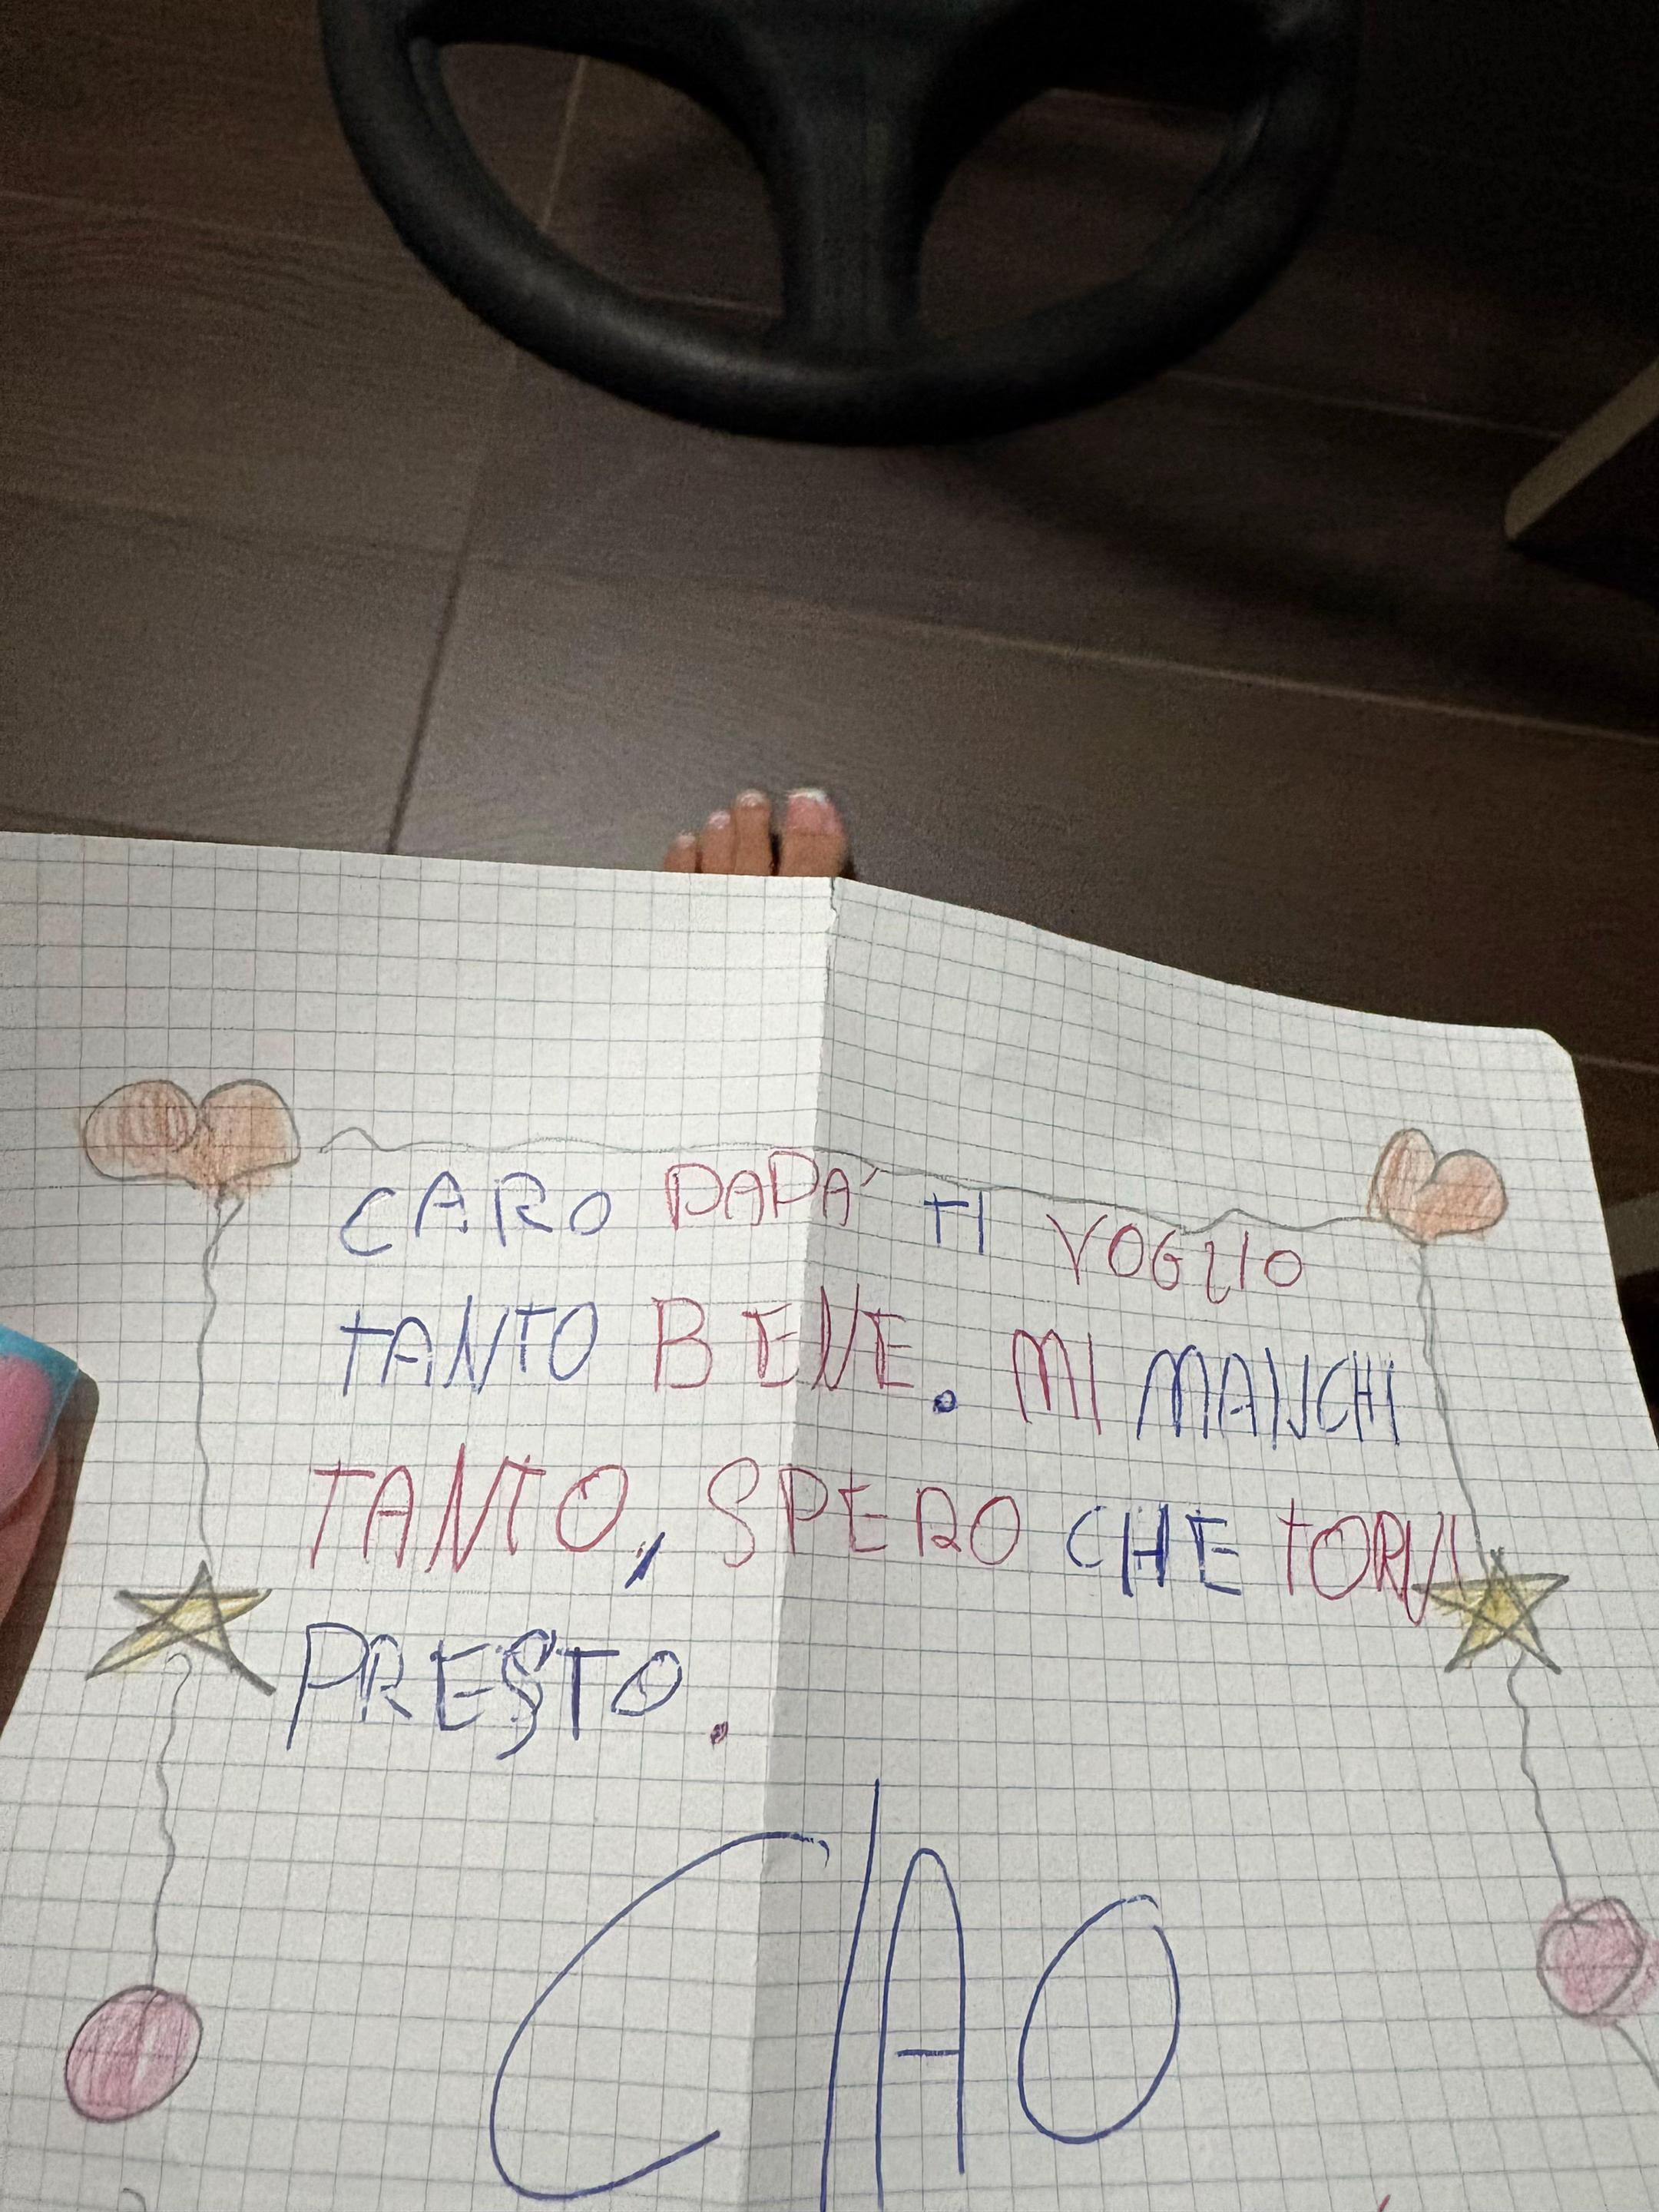 CARO PAPA' TI VOGLIO
TANTO BENE. MI MANCHI
TANTO, SPERO CHE TORNI
PRESTO.
CIAO